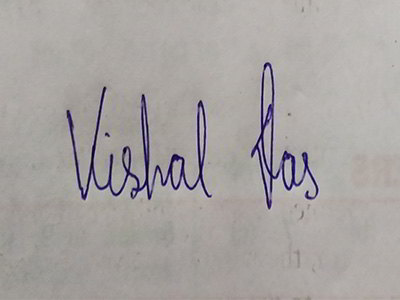 Vishal Das